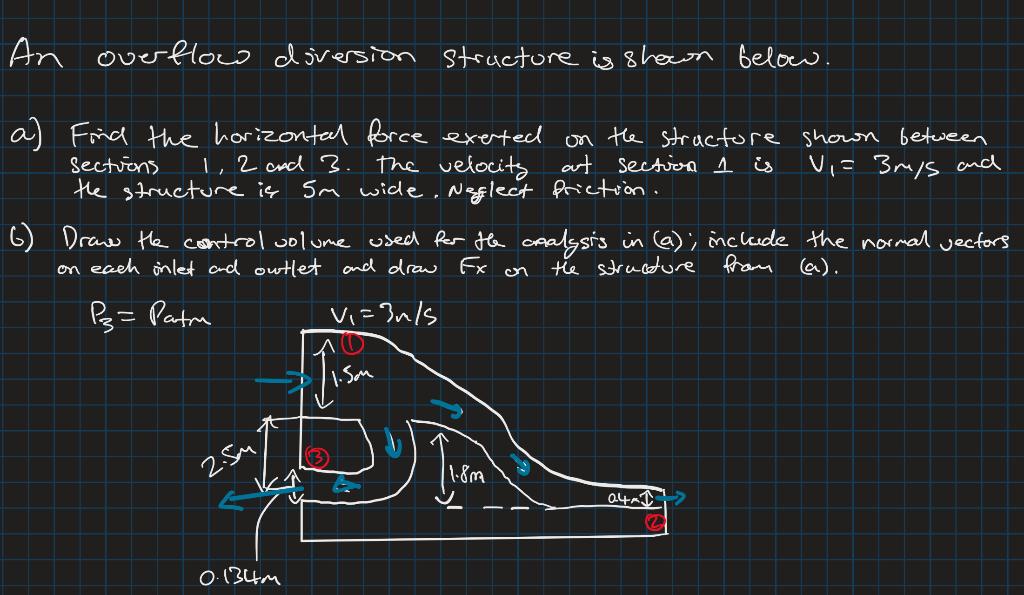 An overflow diversion structure is shown below.
a) Find the horizontal force exerted on the structure shown between
sections 1, 2 and 3. The velocity at section 1 is V₁ = 3m/s and
the structure is 5m wide. Neglect friction.
b) Draw the control volume used for the analysis in (a); include the normal vectors
on each inlet and outlet and draw Fx on the structure from (a).
P₃ = Patm
V₁ = 3m/s
①
1.5m
2.5m
③
1.8m
0.4m
②
0.134m